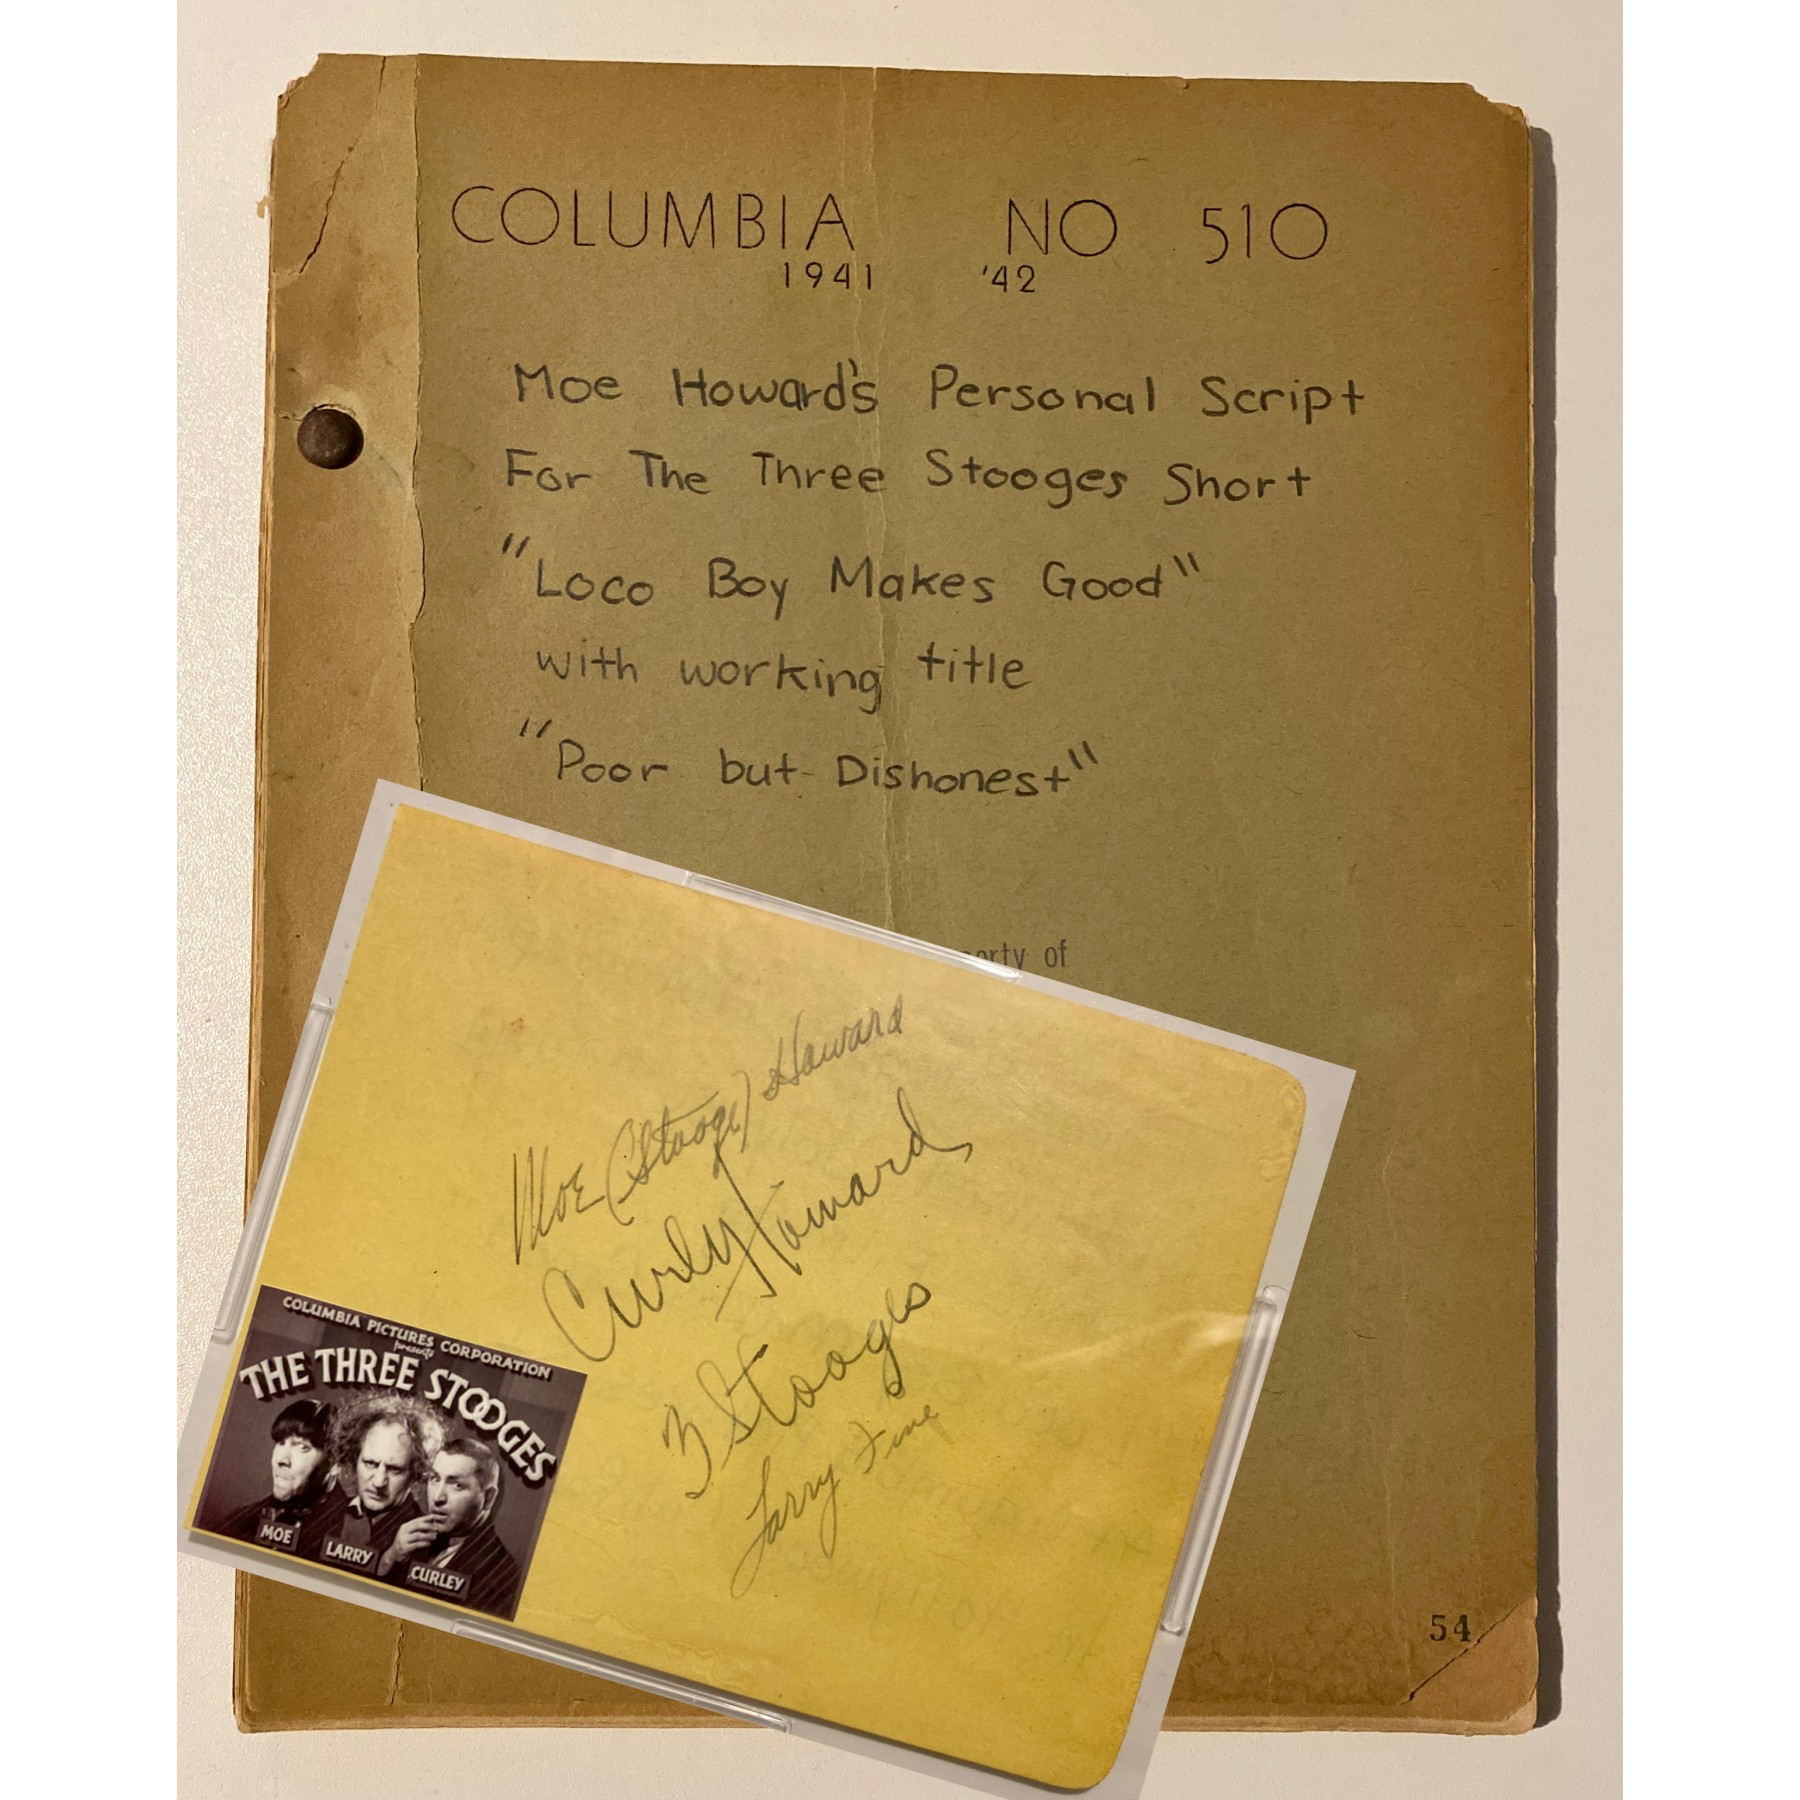 COLUMBIA NO 510
1941 '42
Moe Howard's Personal Script
For The Three Stooges Short
"Loco Boy Makes Good"
with working title
"Poor but Dishonest"
of
Moe (Stooge) Howard
Curly Howard
3 Stooges
Larry Fine
COLUMBIA PICTURES CORPORATION
presents
THE THREE STOOGES
MOE
LARRY
CURLEY
54